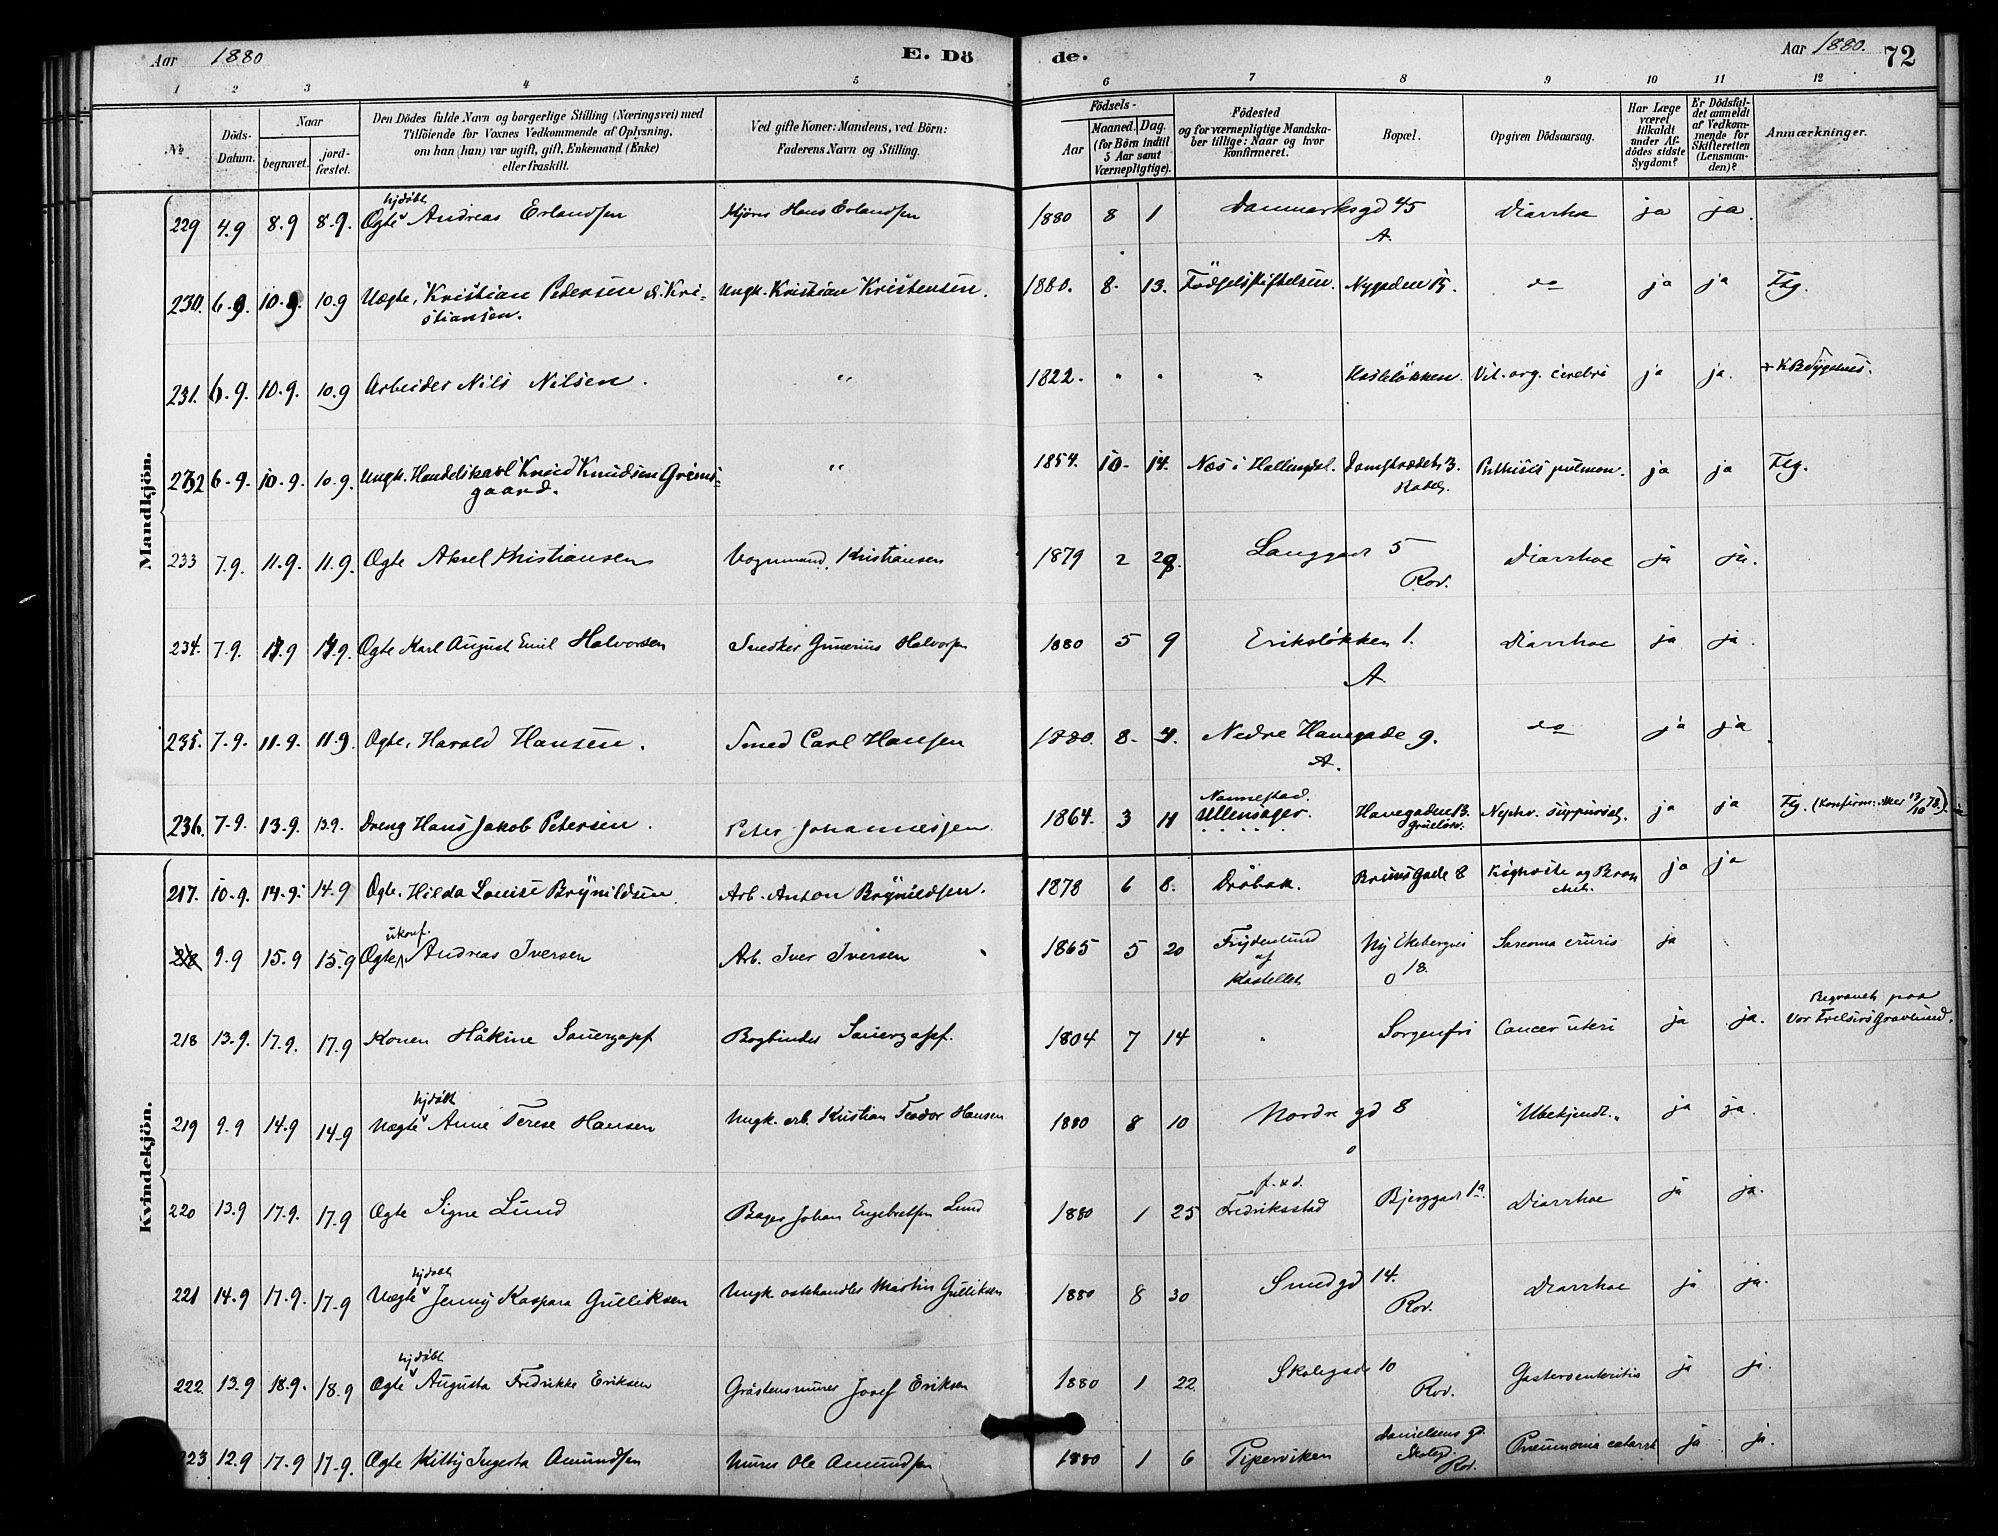 Aar 1880 E. Dö de. Aar 1880. 72
1 2 3 4 5 6 7 8 9 10 11 12
№ Döds-Datum. Naar begravet. jordfæstet. Den Dödes fulde Navn og borgerlige Stilling (Næringsvei) med Tilföiende for Voxnes Vedkommende af Oplysning, om han (hun) var ugift, gift, Enkemand (Enke) eller fraskilt. Ved gifte Koner: Mandens, ved Börn: Faderens Navn og Stilling. Födsels- Aar Maaned. Dag. (for Börn indtil 5 Aar samt Værnepligtige). Födested og for værnepligtige Mandskaber tillige: Naar og hvor konfirmeret. Bopæl. Opgiven Dödsaarsag. Har Læge været tilkaldt under Afdödes sidste Sygdom? Er Dödsfaldet anmeldt af Vedkommende for Skifteretten (Lensmanden)? Anmærkninger.
Mandkjön.
229 4.9 8.9 8.9. Ægte hjdöbt Andreas Erlandsen Kjörer Hans Erlandsen 1880 8 1 Danmarksgd 45 A. Diarrhoe ja ja.
230. 6.9. 10.9. 10.9 Uægte, Kristian Pedersen el. Kristiansen. Ungk. Kristian Kristensen. 1880. 8. 13. Födselsstiftelsen. Nygaden 15. do ja ja Flg.
231. 6.9. 10.9. 10.9 Arbeider Nils Nilsen. " 1822. " " " Vit. org. cerebri ja ja.
232 6.9. 10.9. 10.9. Ungk. Handelskarl Knud Knudsen Grimsgaard. " 1854. 10. 14. Næs i Hallingdal. Damstrædet 3. Phthisis pulmon. ja ja Flg.
233 7.9. 11.9. 11.9. Ægte Aksel Kristiansen Vognmand, Kristiansen 1879 2 28. Langgade 5 Rov. Diarrhoe ja ja.
234. 7.9. 11.9 11.9. Ægte Karl August Emil Halvorsen Snedker Gunerius Halvorsen 1880 5 9 Eriksløkken 1. A. Diarrhoe ja ja.
235. 7.9. 11.9. 11.9 Ægte, Harald Hansen. Smed Carl Hansen 1880. 8. 4. Nedre Havegade 9. A. do ja ja
236. 7.9. 13.9. 13.9. Dreng Hans Jakob Petersen. Peter Johannessen 1864. 3 11 Nannestad. Ullensager. Havegaden 13. Grünerl. Nephr. suppurat. ja ja Flg. (Konfirm: Aker 13/10 78.)
Kvindekjön.
217. 10.9. 14.9. 14.9 Ægte, Hilda Louise Brynildsen. Arb. Anton Brynildsen. 1878 6 8. Dröbak. Bruns Gade 8 Kighoste og Bronchit. ja ja
218 9.9 15.9 15.9 Ægte ukonf. Andreas Iversen Arb. Iver Iversen 1865 5 20 Frydenlund af Kastellet Ny Ekebergvei 18. O Sarcoma cruris ja
218 13.9. 17.9. 17.9 Konen Håkine Sauerzapf Bogbinder Sauerzapf. 1804 7 14 " Sorgenfri Cancer uteri ja ja. Begravet paa Vor Frelsers Gravlund.
219 9.9 14.9 14.9 Uægte hjdöbt Anne Terese Hansen Ungk. arb. Kristian Teodor Hansen 1880 8 10 Nordre gd 8 O "Ubekjendt." ja ja.
220 13.9 17.9. 17.9 Ægte Signe Lund Bager Johan Engebretsen Lund 1880 1 25 Fredriksstad Bjerggade 1a. Diarrhoe ja ja.
221 14.9 17.9. 17.9 Uægte hjdöbt Jenny Kaspara Gulliksen Ungk. ostehandler Martin Gulliksen 1880 8 30 Smedgd 14. Rov. Diarrhoe ja ja.
222. 13.9 18.9. 18.9 Ægte hjdöbt Augusta Fredrikke Eriksen Gråstensmurer Josef Eriksen 1880 1 22 Skolegade 10 Rov. Gastroenteritis ja ja.
223 12.9 17.9 17.9. Ægte Kitty Ingerta Amundsen Murer Ole Amundsen 1880 1 6 Piperviken Danielsens gd. Skolegd. Rov. Pneumonia catarrh ja ja.